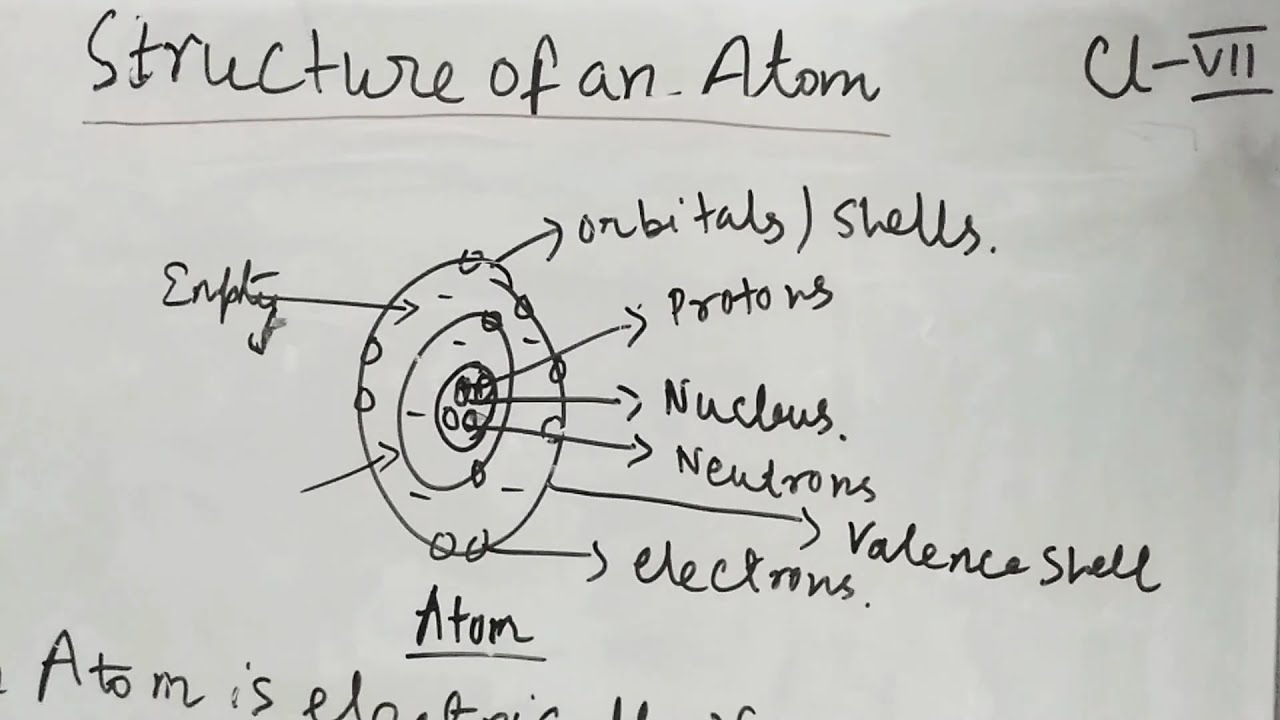 Structure of an Atom
Cl-VII
orbitals/shells.
Empty
Protons
Nucleus.
Neutrons
Valence Shell
electrons.
Atom
Atom is